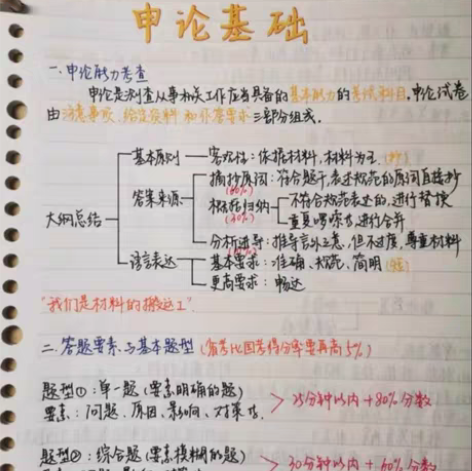 申论基础
一.申论能力考查
申论是测查从事机关工作应当具备的基本能力的考试科目,申论试卷
由注意事项、给定资料和作答要求三部分组成。
大纲总结
基本原则 客观性:依据材料,材料为王.
答案来源
摘抄原词:符合题干,表述规范的原词直接抄
(60%)
概括归纳 不符合规范表达的,进行替换
(30%)
重复啰嗦的,进行合并
分析推导:推导言外之意,但不过度,尊重材料
(10%)
语言表达 基本要求:准确、规范、简明
更高要求:畅达
"我们是材料的搬运工".
二.答题要素与基本题型(省考比国考得分率要再高5%)
题型①:单一题(要素明确的题)
要素:问题、原因、影响、对策 > 25分钟以内+80%分数
题型②:综合题(要素模糊的题) 30分钟以内+60%分数